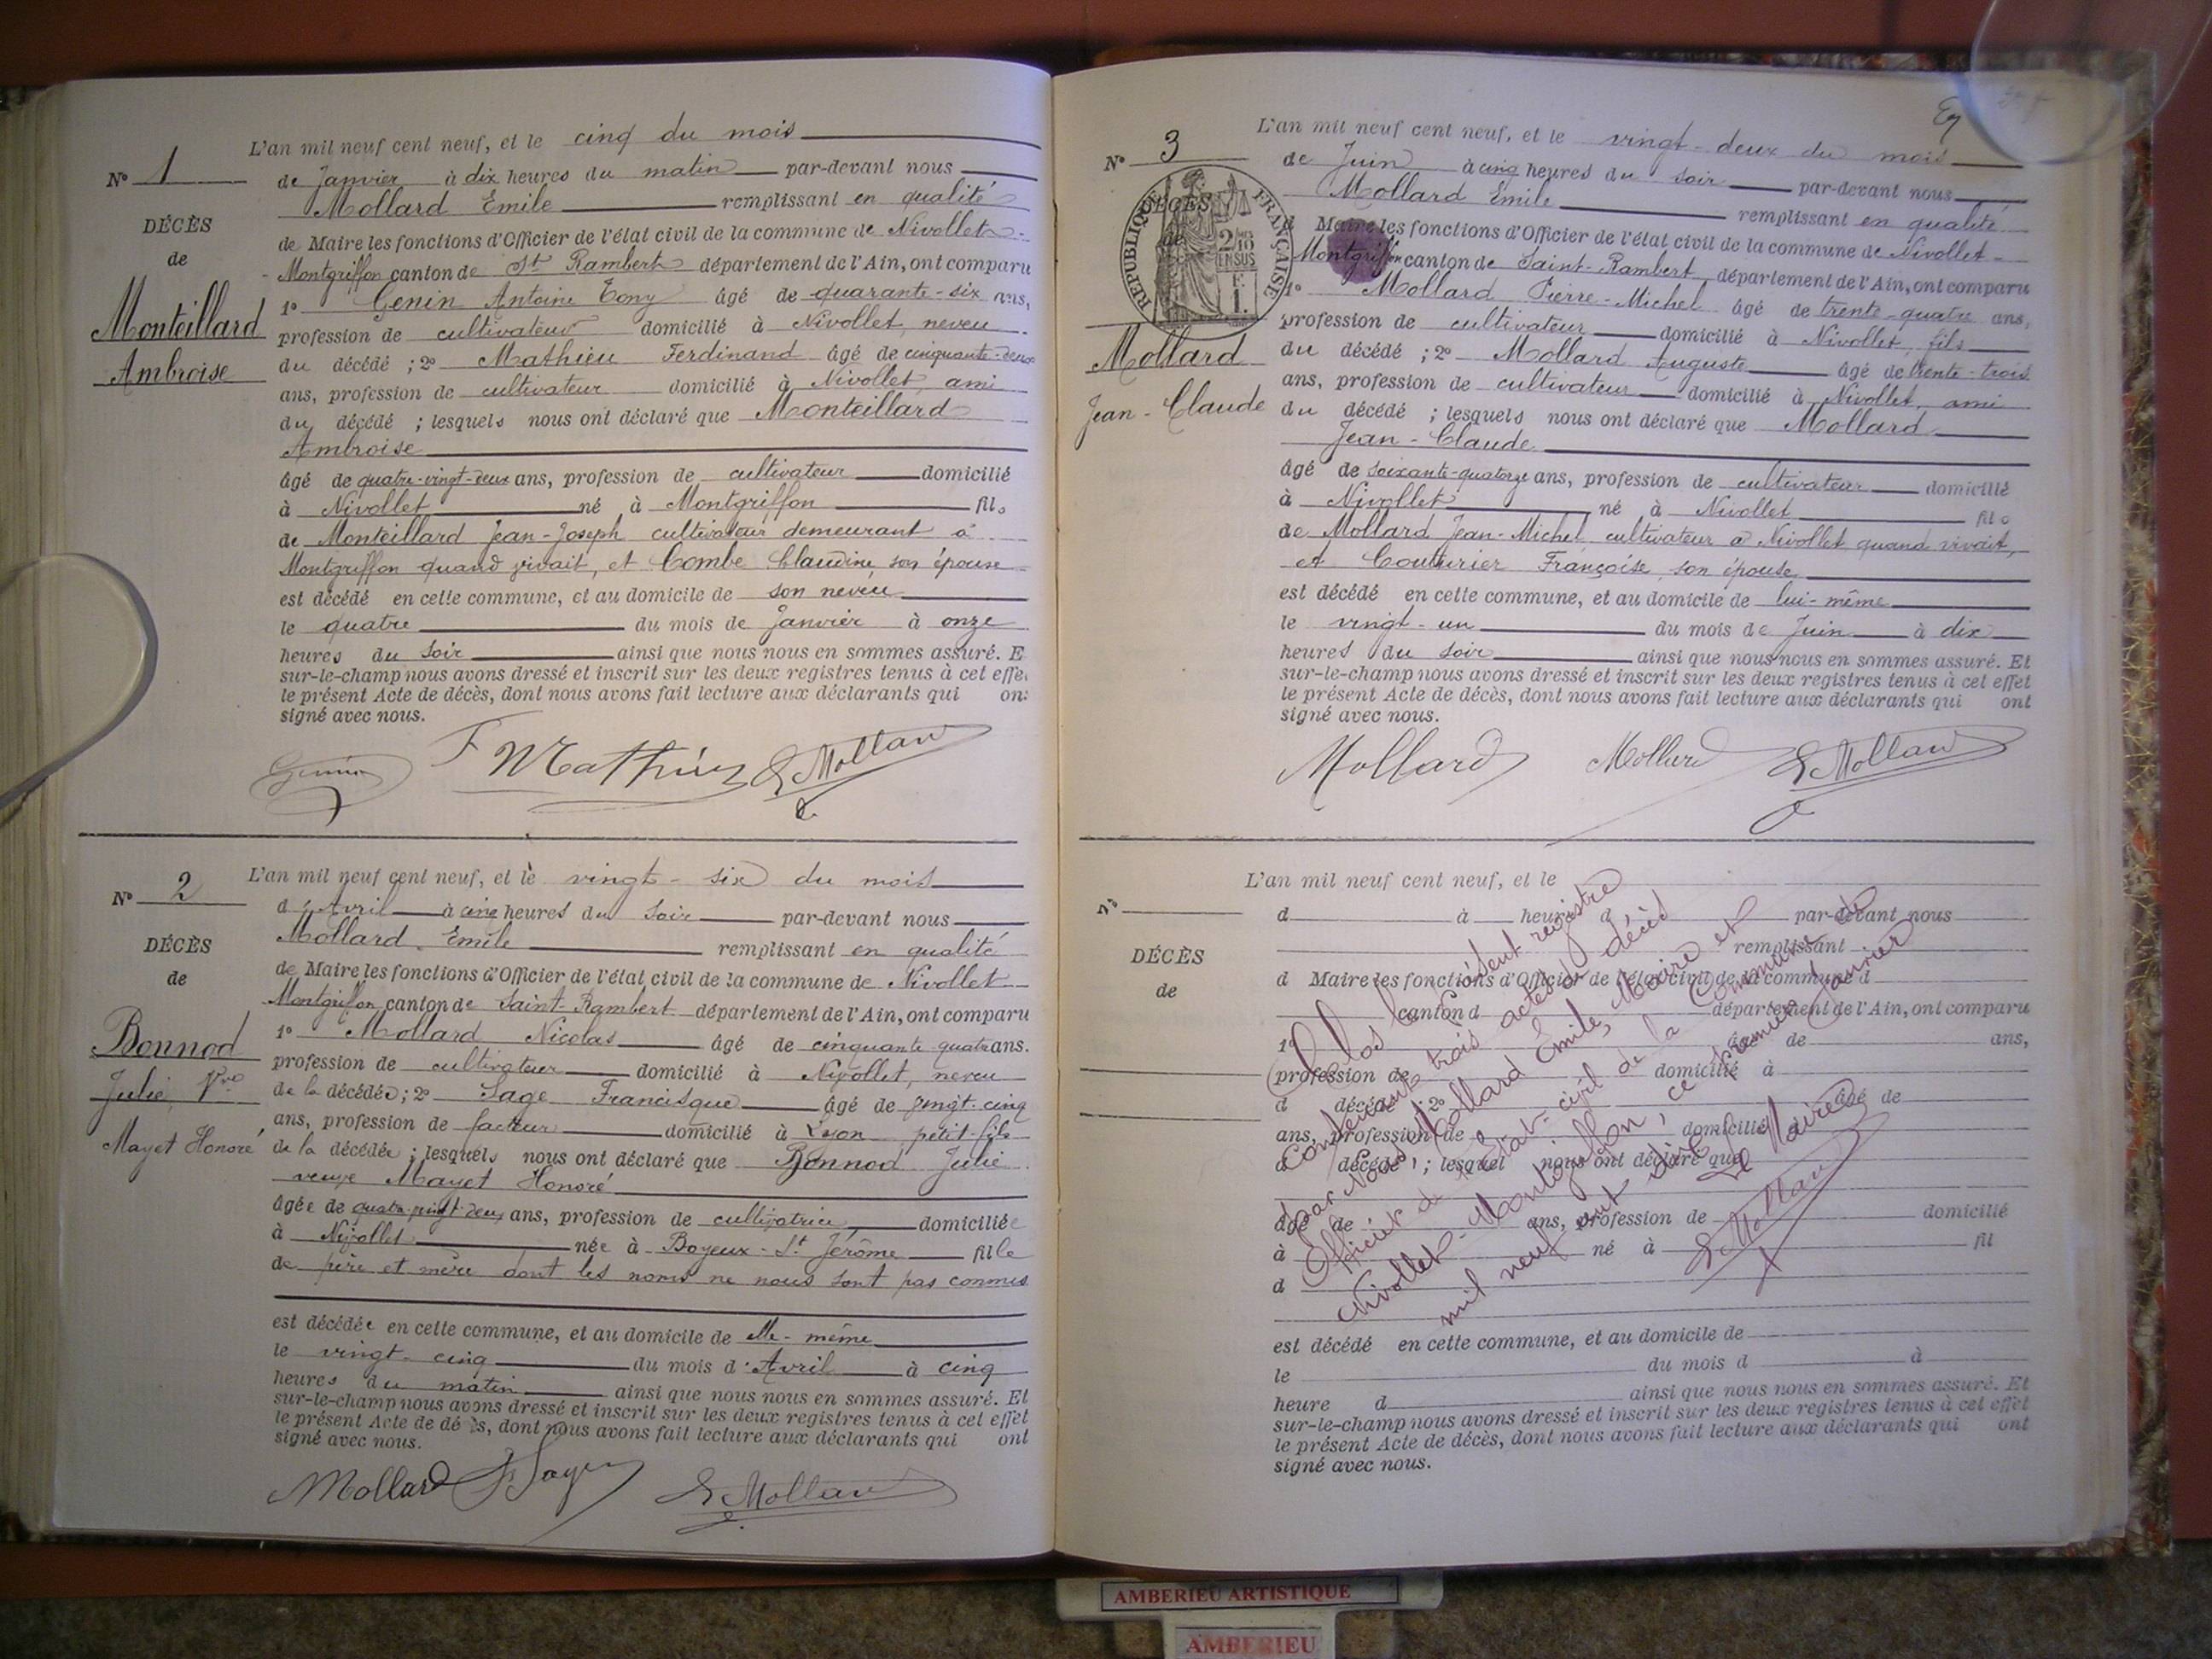 L'an mil neuf cent neuf, et le cinq du mois
N° 1
de Janvier à dix heures du matin par-devant nous
Mollard Emile remplissant en qualité
DÉCÈS
de Maire les fonctions d'Officier de l'état civil de la commune de Nivollet-
de
Montgriffon canton de St Rambert département de l'Ain, ont comparu
1° Genin Antoine Tony âgé de quarante-six ans,
Monteillard
profession de cultivateur domicilié à Nivollet, neveu
du décédé ; 2° Mathieu Ferdinand âgé de cinquante-deux
Ambroise
ans, profession de cultivateur domicilié à Nivollet, ami
du décédé ; lesquels nous ont déclaré que Monteillard
Ambroise
âgé de quatre-vingt-deux ans, profession de cultivateur domicilié
à Nivollet né à Montgriffon fils
de Monteillard Jean-Joseph cultivateur demeurant à
Montgriffon quand vivait, et Combe Claudine, son épouse
est décédé en cette commune, et au domicile de son neveu
le quatre du mois de Janvier à onze
heures du soir ainsi que nous nous en sommes assuré. E
sur-le-champ nous avons dressé et inscrit sur les deux registres tenus à cet effe
le présent Acte de décès, dont nous avons fait lecture aux déclarants qui on
signé avec nous.
Genin F Mathieu E Mollard
L'an mil neuf cent neuf, et le vingt-six du mois
N° 2
d'Avril à cinq heures du soir par-devant nous
Mollard Emile remplissant en qualité
DÉCÈS
de Maire les fonctions d'Officier de l'état civil de la commune de Nivollet
de
Montgriffon canton de Saint-Rambert département de l'Ain, ont comparu
1° Mollard Nicolas âgé de cinquante-quatre ans.
Bonnod
profession de cultivateur domicilié à Nivollet, neveu
Julie, Vve
de la décédée ; 2° Sage Francisque âgé de vingt-cinq
ans, profession de facteur domicilié à Lyon petit-fils
Mayet Honoré
de la décédée ; lesquels nous ont déclaré que Bonnod Julie
veuve Mayet Honoré
âgée de quatre-vingt-deux ans, profession de cultivatrice domiciliée
à Nivollet née à Boyeux-St Jérôme fille
de père et mère dont les noms ne nous sont pas connus
est décédée en cette commune, et au domicile de elle-même
le vingt-cinq du mois d'Avril à cinq
heures du matin ainsi que nous nous en sommes assuré. Et
sur-le-champ nous avons dressé et inscrit sur les deux registres tenus à cet effet
le présent Acte de dé ès, dont nous avons fait lecture aux déclarants qui ont
signé avec nous.
Mollard F Sage E Mollard
L'an mil neuf cent neuf, et le vingt-deux du mois
N° 3
de Juin à cinq heures du soir par-devant nous
Mollard Emile remplissant en qualité
DÉCÈS
de
RÉPUBLIQUE FRANÇAISE
2/10 EN SUS
1 F.
d Maire les fonctions d'Officier de l'état civil de la commune de Nivollet-
Montgriffon canton de Saint-Rambert département de l'Ain, ont comparu
1° Mollard Pierre-Michel âgé de trente-quatre ans,
profession de cultivateur domicilié à Nivollet, fils
Mollard
du décédé ; 2° Mollard Auguste âgé de trente-trois
ans, profession de cultivateur domicilié à Nivollet, ami
Jean-Claude
du décédé ; lesquels nous ont déclaré que Mollard
Jean-Claude
âgé de soixante-quatorze ans, profession de cultivateur domicilié
à Nivollet né à Nivollet fils
de Mollard Jean-Michel cultivateur à Nivollet quand vivait,
et Couturier Françoise, son épouse
est décédé en cette commune, et au domicile de lui-même
le vingt-un du mois de Juin à dix
heures du soir ainsi que nous nous en sommes assuré. Et
sur-le-champ nous avons dressé et inscrit sur les deux registres tenus à cet effet
le présent Acte de décès, dont nous avons fait lecture aux déclarants qui ont
signé avec nous.
Mollard Mollard E Mollard
L'an mil neuf cent neuf, et le
N°
d à heure d par-devant nous
remplissant
DÉCÈS
d Maire les fonctions d'Officier de l'état civil de la commune d
de
canton d département de l'Ain, ont comparu
1° âgé de ans,
profession de domicilié à
d décédé ; 2° âgé de
ans, profession de domicilié à
d décédé ; lesquel nous ont déclaré que
âgé de ans, profession de domicilié
à né à fil
d
est décédé en cette commune, et au domicile de
le du mois d à
heure d ainsi que nous nous en sommes assuré. Et
sur-le-champ nous avons dressé et inscrit sur les deux registres tenus à cet effet
le présent Acte de décès, dont nous avons fait lecture aux déclarants qui ont
signé avec nous.
Clos le présent registre
contenant trois actes de décès
par Nous, Mollard Emile, Maire et
Officier de l'Etat-civil de la Commune de
Nivollet-Montgriffon, ce premier Janvier
mil neuf cent dix
Le Maire
E Mollard
AMBERIEU ARTISTIQUE
AMBERIEU